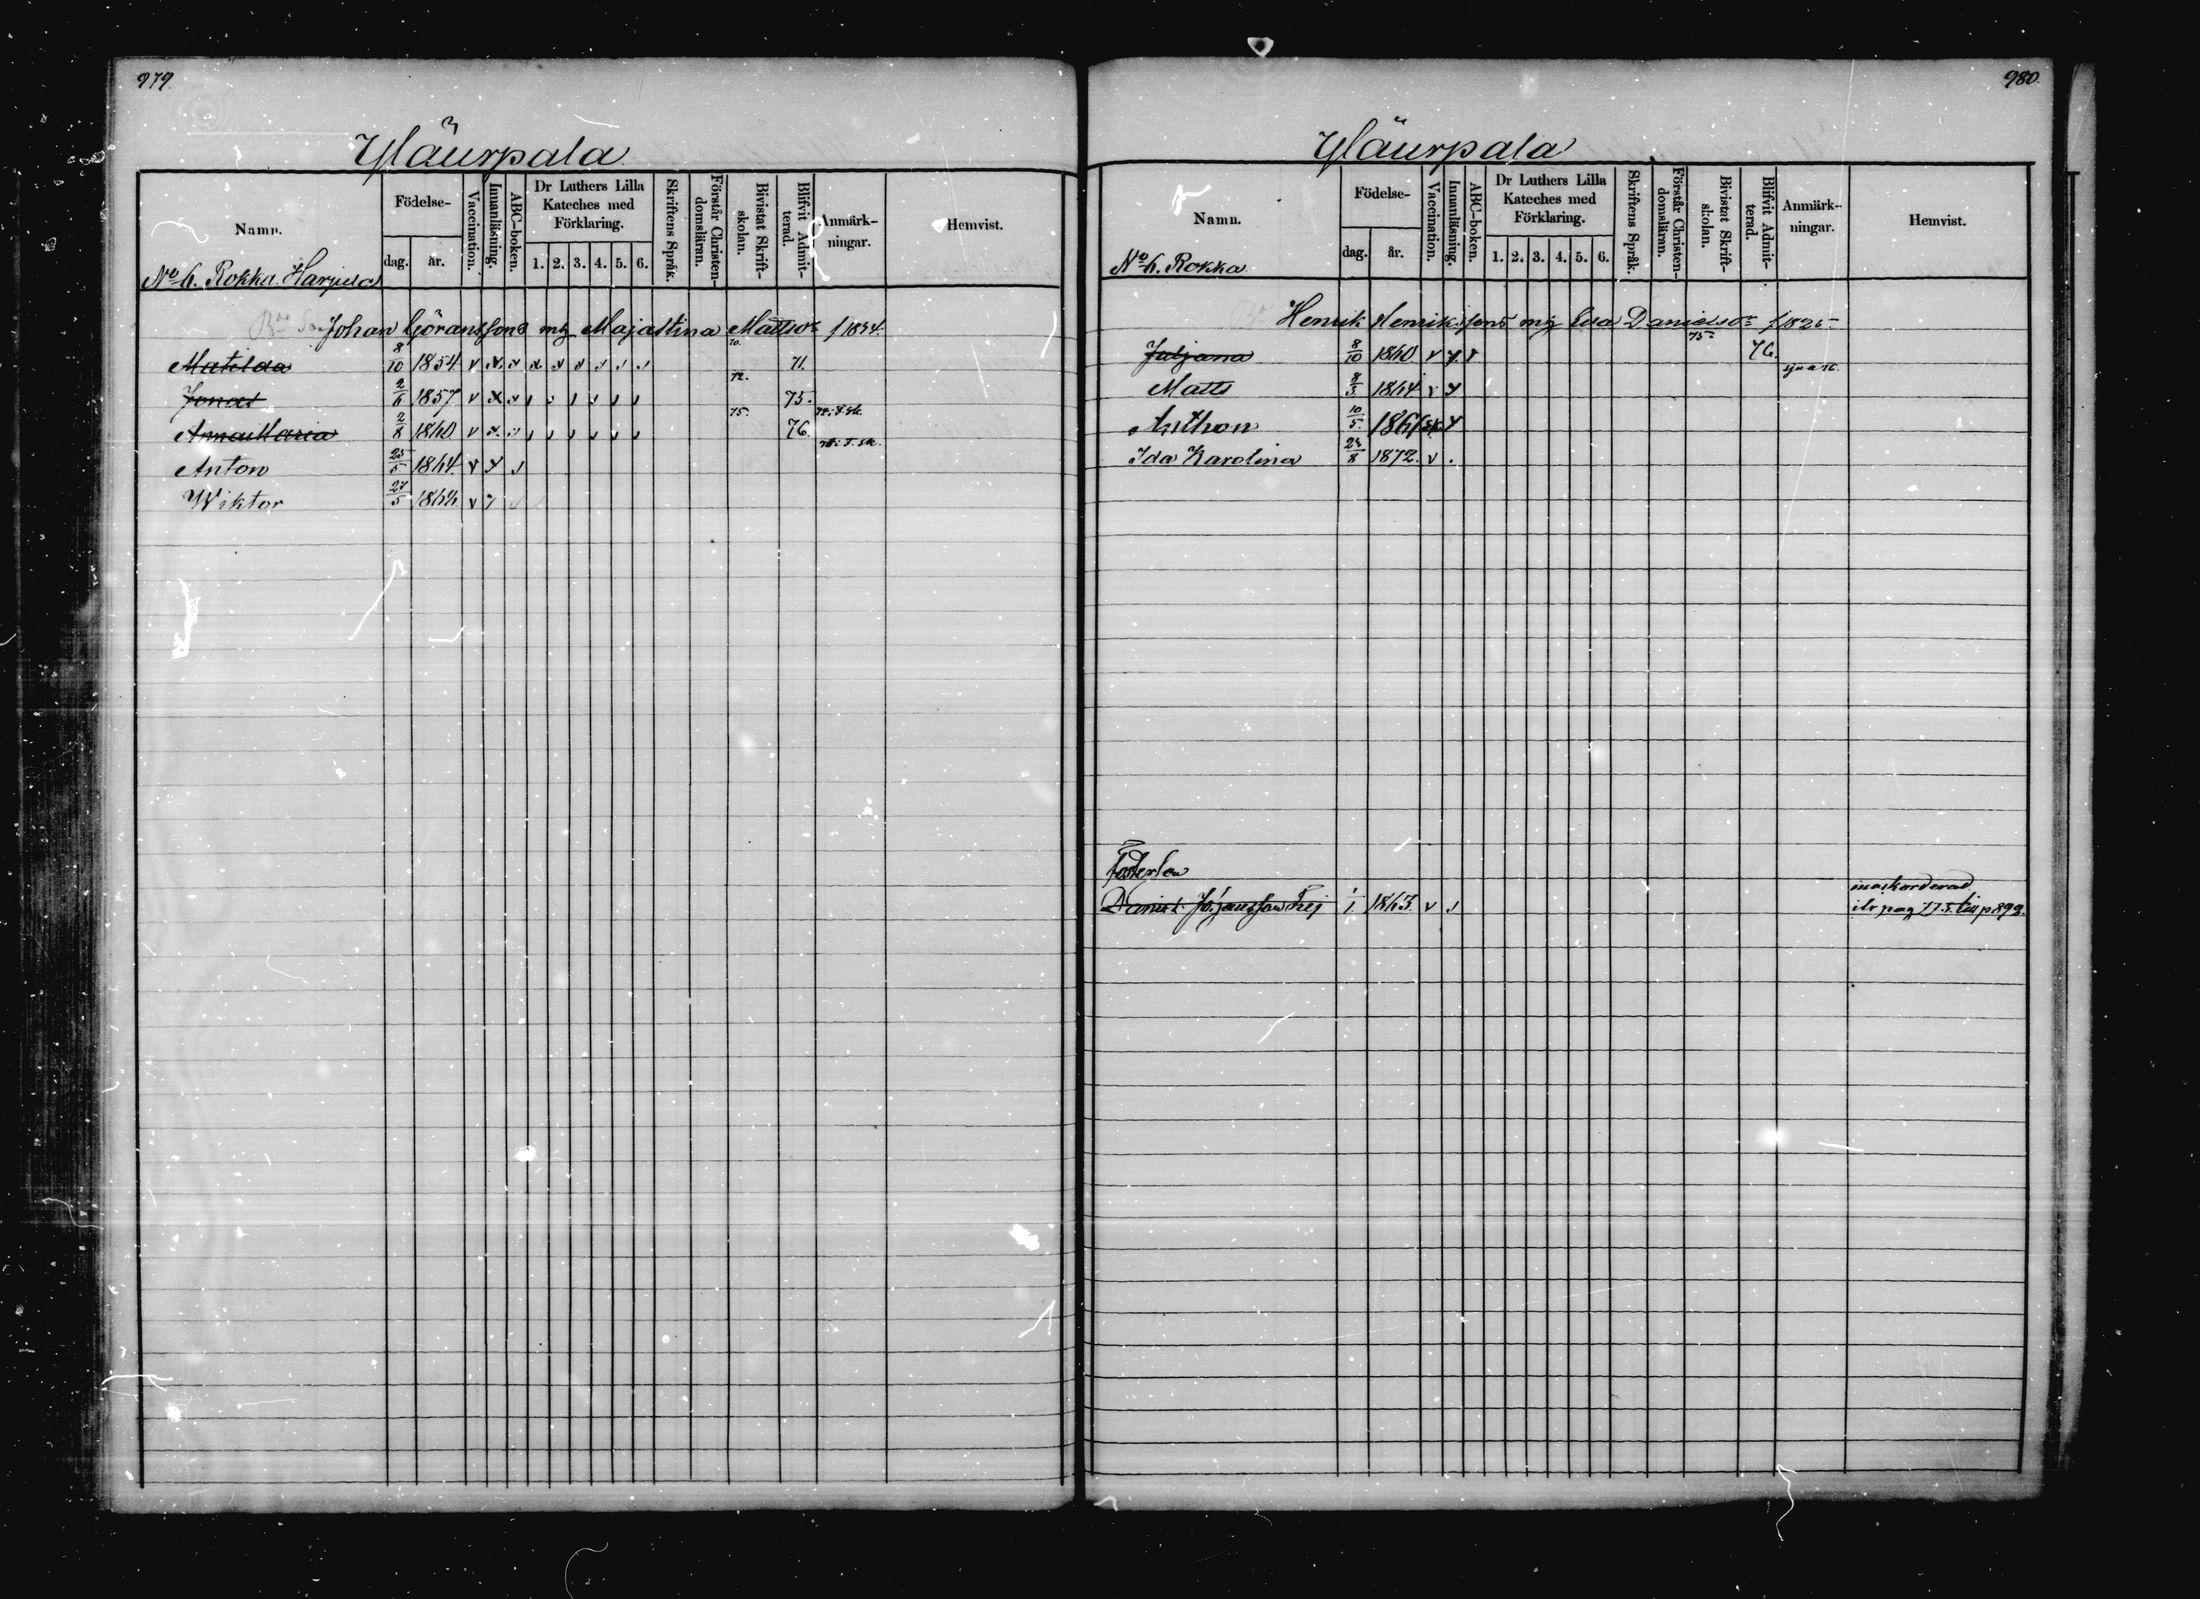 979.
Yläurpala
Namn.
Födelse-
dag. år.
Vaccination.
Innanläsning.
ABC-boken.
Dr Luthers Lilla Kateches med Förklaring.
1. 2. 3. 4. 5. 6.
Skriftens Språk.
Förstår Christen-domsläran.
Bivistat Skrift-skolan.
Blifvit Admit-terad.
Anmärk-ningar.
Hemvist.
No 6. Rokka Harpela
Johan Göranssons mj Majastina Mattsdr f 1834.
Matilda 8/10 1854 v x 70. 71.
Jonas 2/6 1857 v x 72. 75.
Anna Maria 2/8 1860 v x 75. 76.
Anton 25/5 1864 v
Wiktor 27/5 1866 v
980.
Yläurpala
Namn.
Födelse-
dag. år.
Vaccination.
Innanläsning.
ABC-boken.
Dr Luthers Lilla Kateches med Förklaring.
1. 2. 3. 4. 5. 6.
Skriftens Språk.
Förstår Christen-domsläran.
Bivistat Skrift-skolan.
Blifvit Admit-terad.
Anmärk-ningar.
Hemvist.
No 6. Rokka
Henrik Henrikssons mj Eva Danielsdr f 1825
Juljana 8/10 1860 v 75 76.
Matts 8/3 1864 v
Anthon 10/5 186
Ida Karolina 23/8 1872. v
Fosterson
Daniel 1/1 1863. v
pag 775. till p 899.